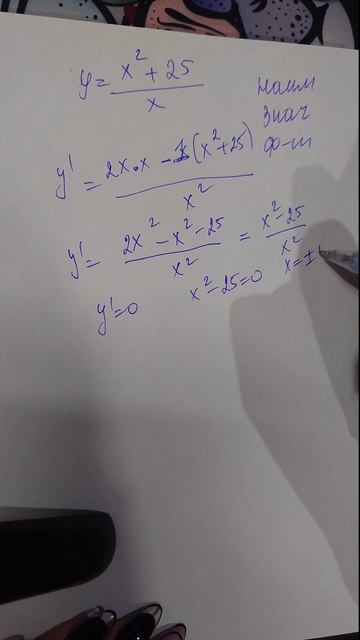 y = (x² + 25) / x
наим
знач
ф-ии
y' = (2x·x - 1(x² + 25)) / x²
y' = (2x² - x² - 25) / x² = (x² - 25) / x²
y' = 0 x² - 25 = 0 x = ±